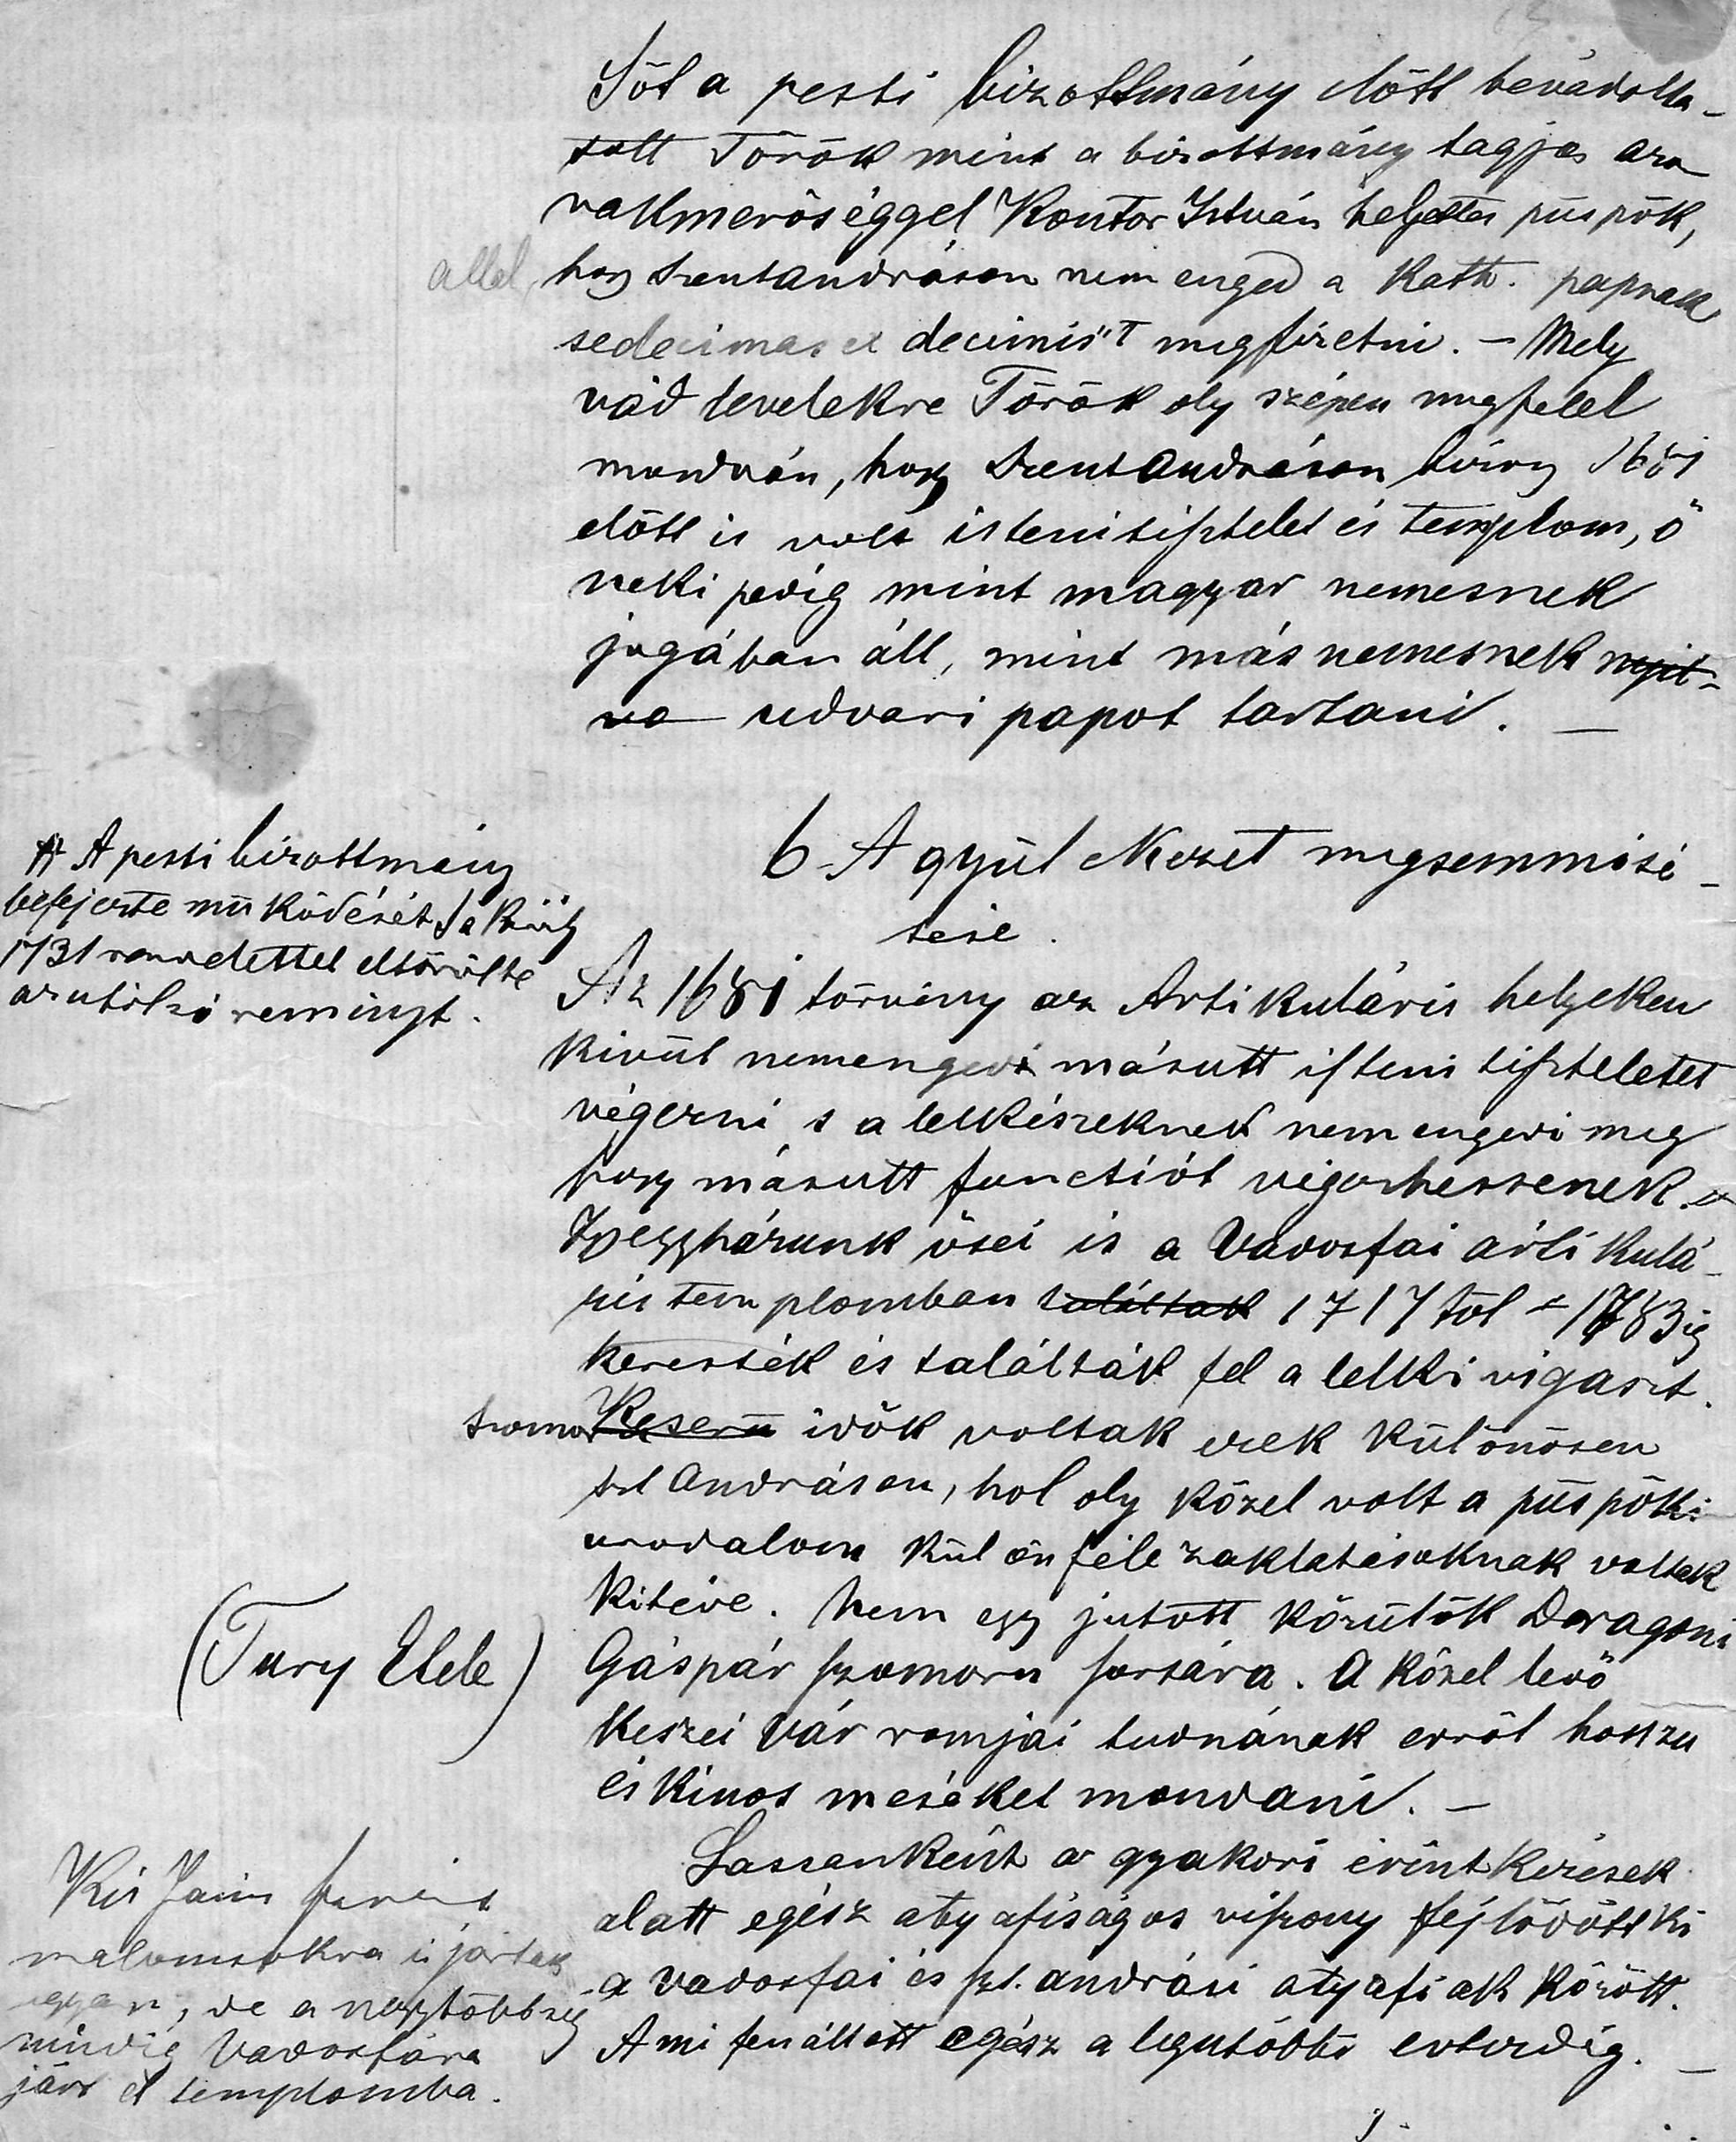 Sőt a pesti bizottmány előtt bevádolta-
tott Török mint a bizottmány tagja az
vakmerőséggel Kontor István helyettes püspök,
által, hogy Szentandráson nem enged a Kath. papnak
sedecimas et decimis"t megfizetni. – Mely
vád levelekre Török oly szépen megfelel
mondván, hogy Szentandráson bizony 1681
előtt is volt istenitisztelet és templom, ő
neki pedig mint magyar nemesnek
jogában áll, mint más nemesnek nyit-
va udvari papot tartani. –
6 A gyülekezet megsemmisí-
tése.
# A pesti bizottmány
befejezte működését s a Király
1731 rendelettel eltörölte
az utolsó reményt.
Az 1681 törvény az Artikuláris helyeken
kivül nem engedi másutt isteni tiszteletet
végezni s a lelkészeknek nem engedi meg
hogy másutt functiót végezhessenek. #
Igy egyházunk ősei is a Vadosfai artikulá-
ris templomban találtak 1717től – 1783ig
keresték és találták fel a lelki vigaszt.
szomorú Keserü idők voltak ezek különösen
szt Andráson, hol oly közel volt a püspöki
uradalom különféle zaklatásoknak voltak
kitéve. Nem egy jutott közülök Daragoni
(Tury Etele)
Gáspár szomoru sorsára. A közel levő
Keszei vár romjai tudnának erről hosszu
és kinos meséket mondani. –
Lassanként a gyakori érintkezések
alatt egész atyafiságos viszony fejlődött ki
a vadosfai és szt. andrási atyafiak között.
Ami fenállott egész a legutóbbi évtizedig. –
Kis
malomsokra is jártak
ugyan, de a nagytöbbség
mindig Vadosfára
járt el templomba.